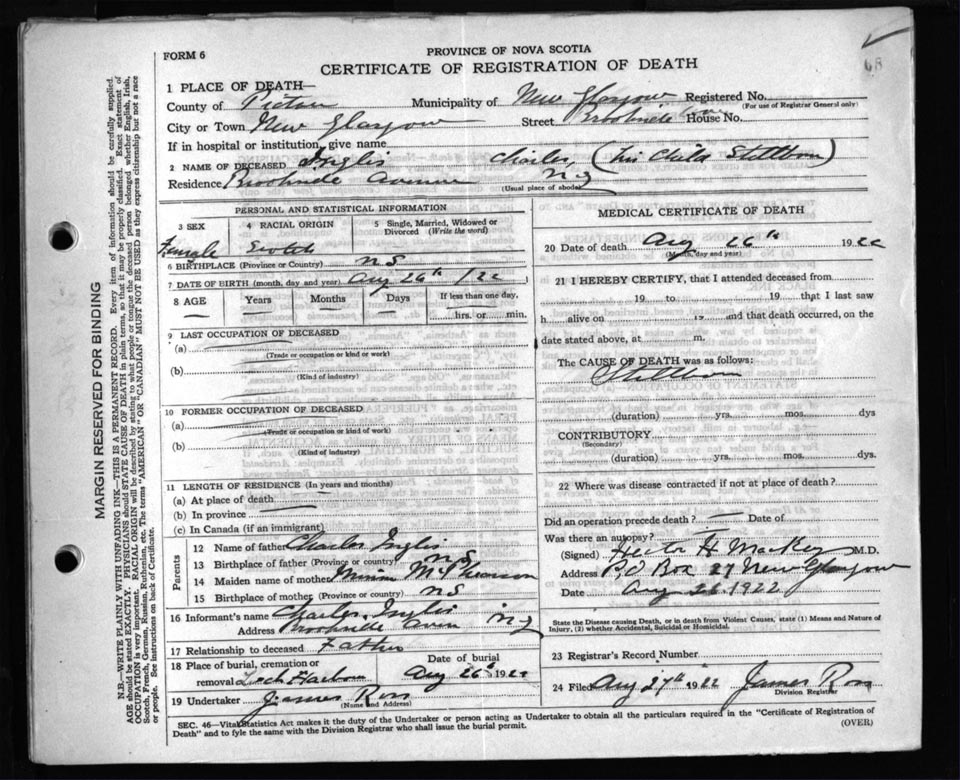 6B
PROVINCE OF NOVA SCOTIA
FORM 6
CERTIFICATE OF REGISTRATION OF DEATH
1 PLACE OF DEATH—
County of Pictou Municipality of New Glasgow Registered No.
(For use of Registrar General only)
City or Town New Glasgow Street Brookside Ave House No.
If in hospital or institution, give name
2 NAME OF DECEASED Inglis Charles, (his Child Stillborn)
Residence Brookside Avenue N.G
(Usual place of abode)
PERSONAL AND STATISTICAL INFORMATION
3 SEX 4 RACIAL ORIGIN 5 Single, Married, Widowed or Divorced (Write the word)
Female Scotch
6 BIRTHPLACE (Province or Country) N.S
7 DATE OF BIRTH (month, day and year) Aug 26th /22
8 AGE Years Months Days If less than one day,
hrs. or min.
9 LAST OCCUPATION OF DECEASED
(a)
(Trade or occupation or kind or work)
(b)
(Kind of industry)
10 FORMER OCCUPATION OF DECEASED
(a)
(Trade or occupation or kind of work)
(b)
(Kind of industry)
11 LENGTH OF RESIDENCE (In years and months)
(a) At place of death
(b) In province
(c) In Canada (if an immigrant)
Parents
12 Name of father Charles Inglis
13 Birthplace of father (Province or country) N.S
14 Maiden name of mother McPhearson
15 Birthplace of mother (Province or country) N.S
16 Informant's name Charles Inglis
Address Brookside Aven N.G
17 Relationship to deceased Father
18 Place of burial, cremation or removal Harbour
Date of burial
Aug 26th 1922
19 Undertaker James Ross
(Name and Address)
MEDICAL CERTIFICATE OF DEATH
20 Date of death Aug 26th 1922
(Month, day and year)
21 I HEREBY CERTIFY, that I attended deceased from
19 to 19 that I last saw
h alive on 19 and that death occurred, on the
date stated above, at m.
The CAUSE OF DEATH was as follows:
Stillborn
(duration) yrs. mos. dys
CONTRIBUTORY
(Secondary)
(duration) yrs. mos. dys.
22 Where was disease contracted if not at place of death?
Did an operation precede death? Date of
Was there an autopsy?
(Signed) Hector H Mackay M.D.
Address P.O Box 27 New Glasgow
Date Aug 26 1922
State the Disease causing Death, or in death from Violent Causes, state (1) Means and Nature of Injury, (2) whether Accidental, Suicidal or Homicidal.
23 Registrar's Record Number
24 Filed Aug 27th 1922 James Ross
Division Registrar
SEC. 46—Vital Statistics Act makes it the duty of the Undertaker or person acting as Undertaker to obtain all the particulars required in the "Certificate of Registration of
Death" and to fyle the same with the Division Registrar who shall issue the burial permit.
(OVER)
MARGIN RESERVED FOR BINDING
N.B.—WRITE PLAINLY WITH UNFADING INK—THIS IS A PERMANENT RECORD. Every item of information should be carefully supplied.
AGE should be stated EXACTLY. PHYSICIANS should STATE CAUSE OF DEATH in plain terms, so that it may be properly classified. Exact statement of
OCCUPATION is very important. RACIAL ORIGIN will be described by stating to what people or tongue the deceased person belonged whether English, Irish,
Scotch, French, German, Russian, Ruthenian, etc. The terms "AMERICAN" OR "CANADIAN" MUST NOT BE USED as they express citizenship but not a race
or people. See instructions on back of Certificate.